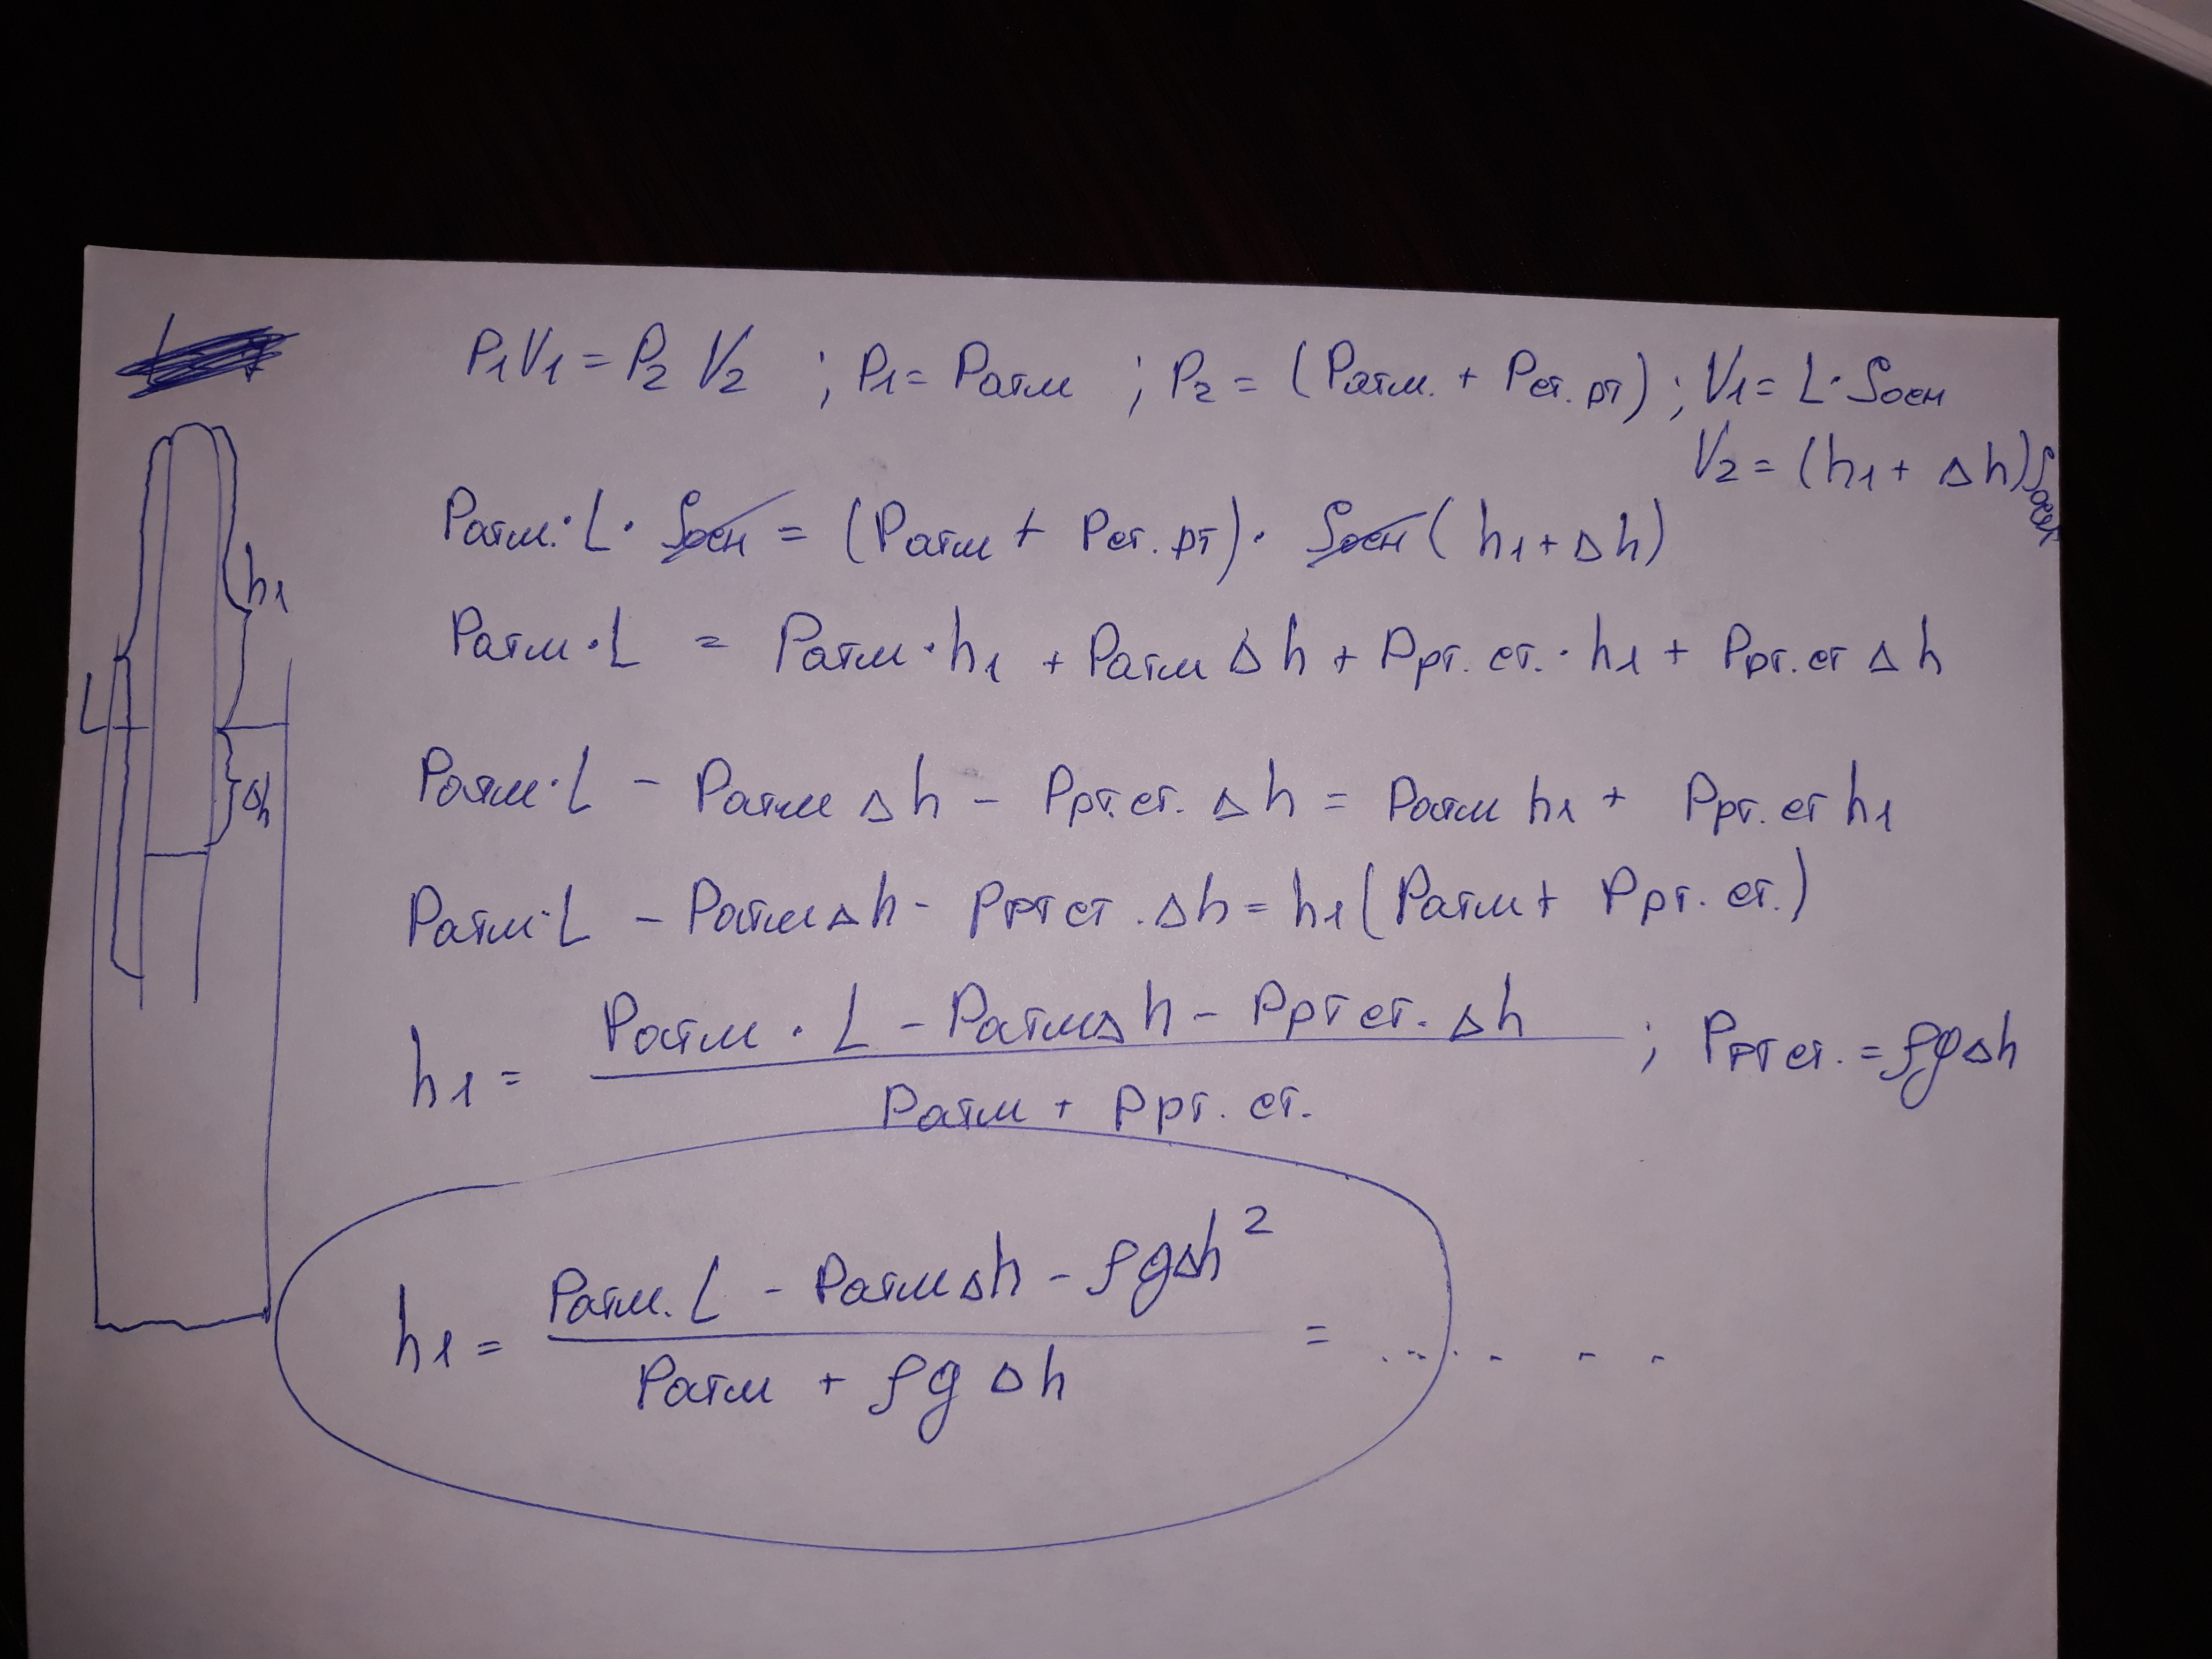 P₁V₁ = P₂ V₂ ; P₁ = Pатм ; P₂ = (Pатм. + Pст. рт) ; V₁ = L · Sосн
V₂ = (h₁ + Δh)Sосн
Pатм. · L · Sосн = (Pатм + Pст. рт) · Sосн (h₁ + Δh)
Pатм · L = Pатм · h₁ + Pатм Δh + Pрт. ст. · h₁ + Pрт. ст Δh
Pатм · L - Pатм Δh - Pрт. ст. Δh = Pатм h₁ + Pрт. ст h₁
Pатм · L - Pатм Δh - Pрт ст. Δh = h₁ (Pатм + Pрт. ст.)
h₁ = (Pатм · L - PатмΔh - Pрт ст. Δh) / (Pатм + Pрт. ст.) ; Pрт ст. = ρgΔh
h₁ = (Pатм. L - PатмΔh - ρgΔh²) / (Pатм + ρg Δh) = . . . . . . .
h₁
L
Δh